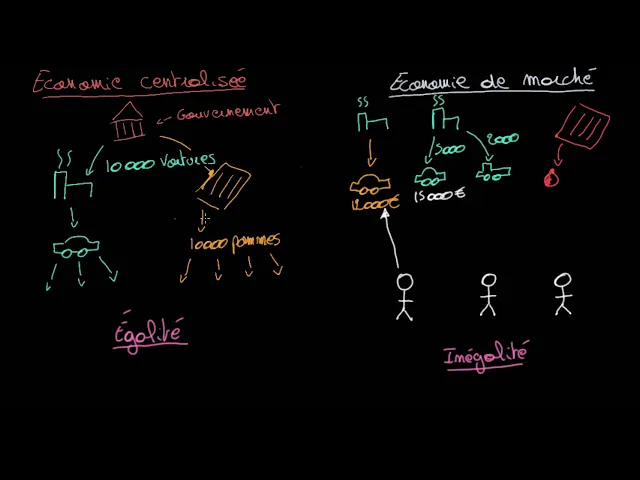 Economie centralisée
Gouvernement
10 000 voitures
10000 pommes
Égalité
Economie de marché
5000
2000
12000€
15000€
Inégalité